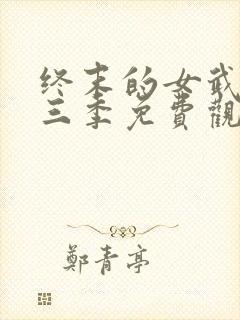 终末的女武
三季免費觀
鄭青亭